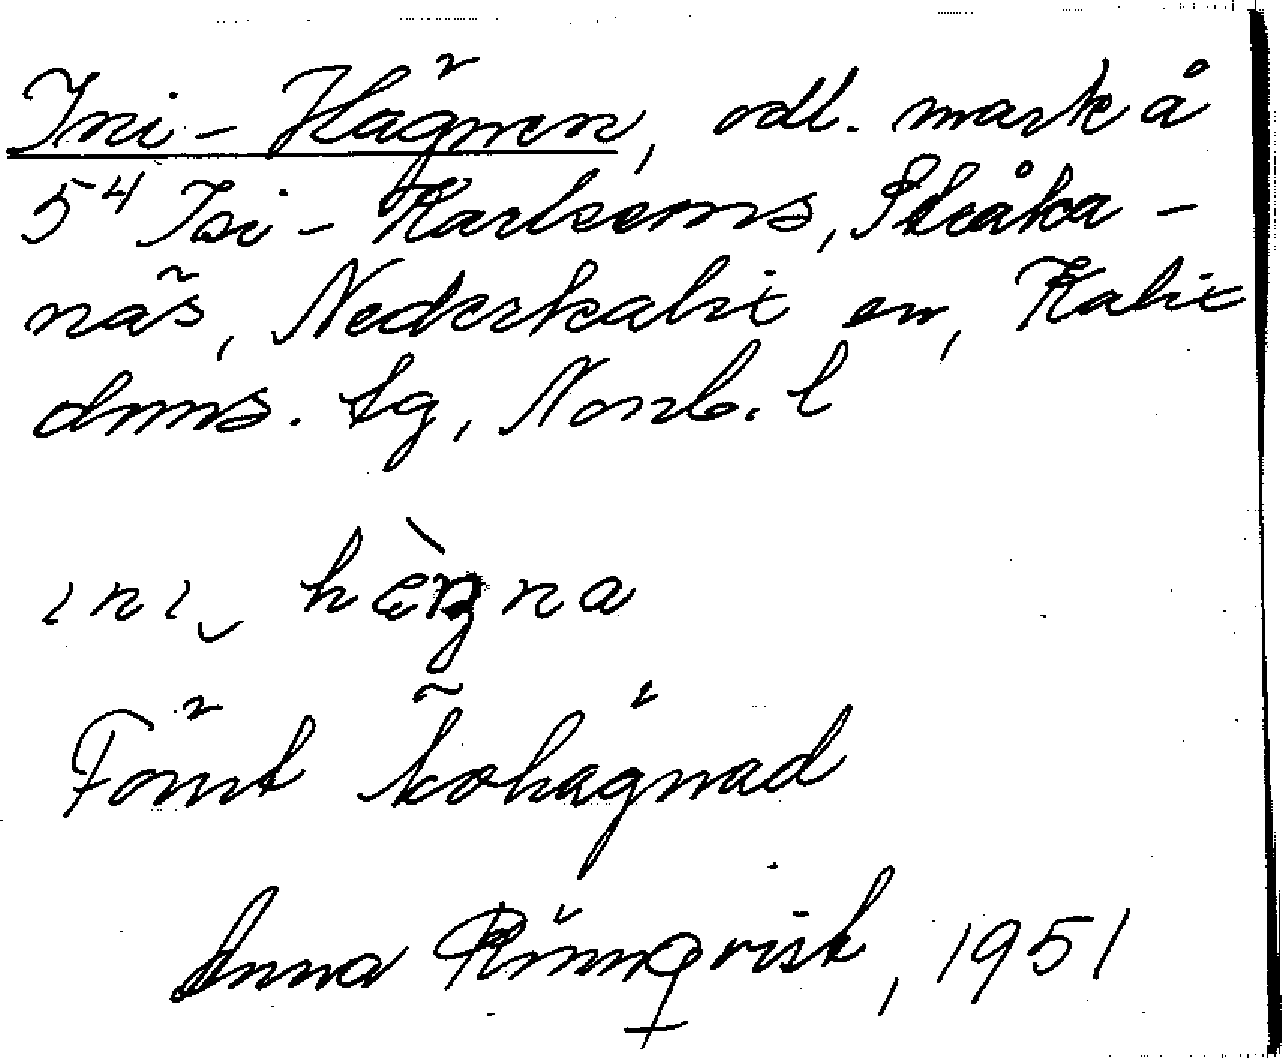 Ini-Hägnen, odl. mark å
5⁴ Isi-Karlsoms, Stråka-
näs, Nederkalix sn, Kalix
dms. tg, Norrb. l
ını hæ̀ŋna
Förut kohägnad
Anna Rönnqvist, 1951